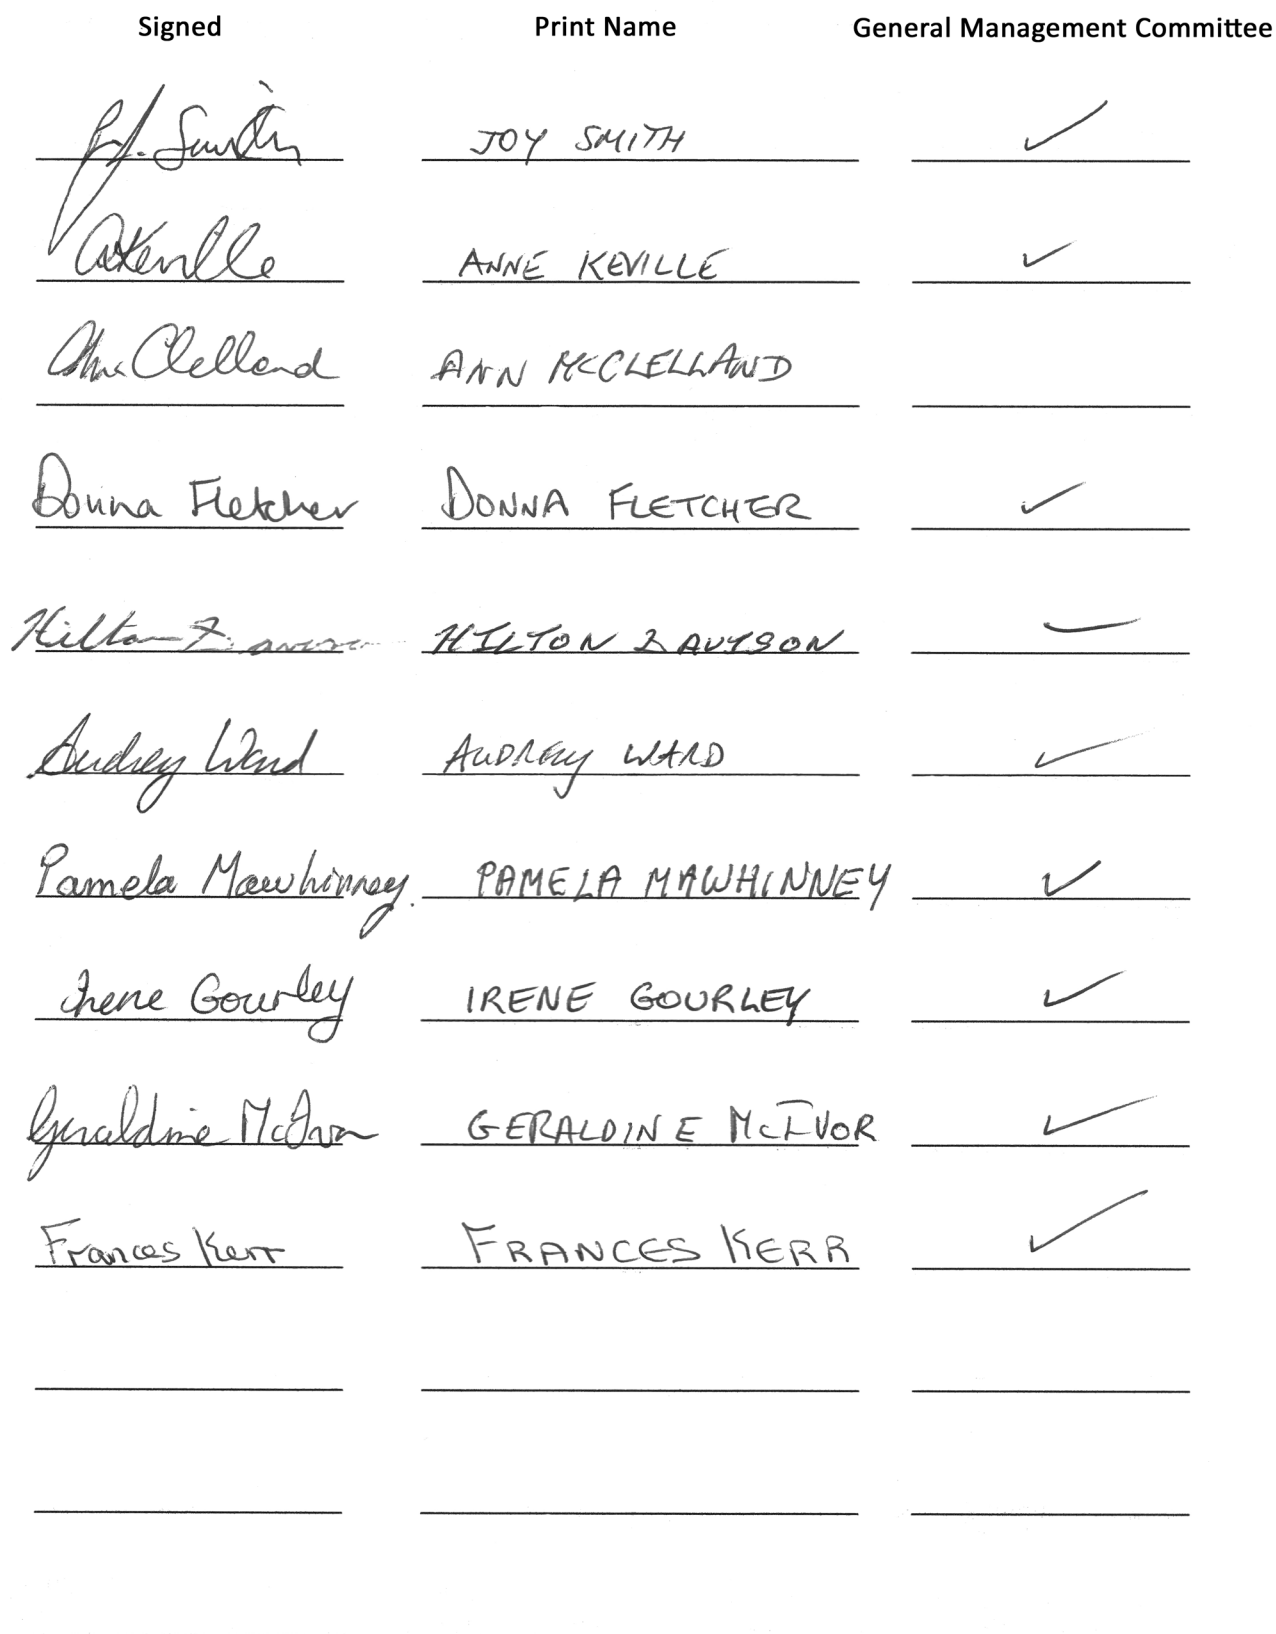 Signed Print Name General Management Committee
Smith JOY SMITH ✓
AKeville ANNE KEVILLE ✓
AMcClelland ANN MCCLELLAND
Donna Fletcher DONNA FLETCHER ✓
Hilton HILTON DAVISON ✓
Audrey Ward AUDREY WARD ✓
Pamela Mawhinney. PAMELA MAWHINNEY ✓
Irene Gourley IRENE GOURLEY ✓
Geraldine McIvor GERALDINE McIVOR ✓
Frances Kerr FRANCES KERR ✓